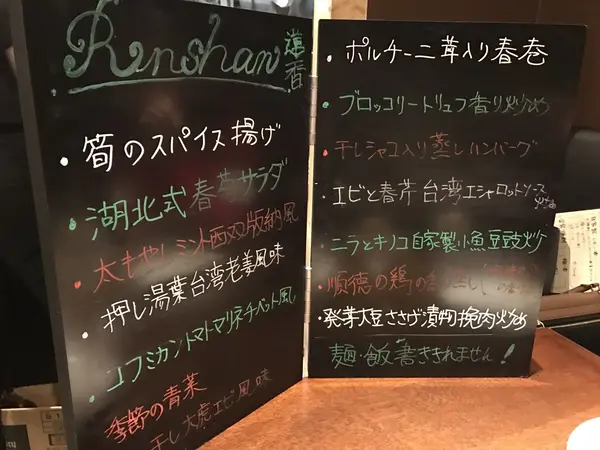 Renshan 蓮香
・筍のスパイス揚げ
・湖北式春菊サラダ
・太もやしミント西双版納風
・押し湯葉台湾老姜風味
・コブミカントマトマリネチベット風
・季節の青菜
干し大虎エビ風味
・ポルチーニ茸入り春巻
・ブロッコリートリュフ香り炒め
・干しシャコ入り蒸しハンバーグ
・エビと春芹台湾エシャロットソース炒め
・ニラとキノコ自家製小魚豆豉炒
・順徳の鶏の
・発芽大豆ささげ漬物挽肉炒め
麺・飯書ききれません!